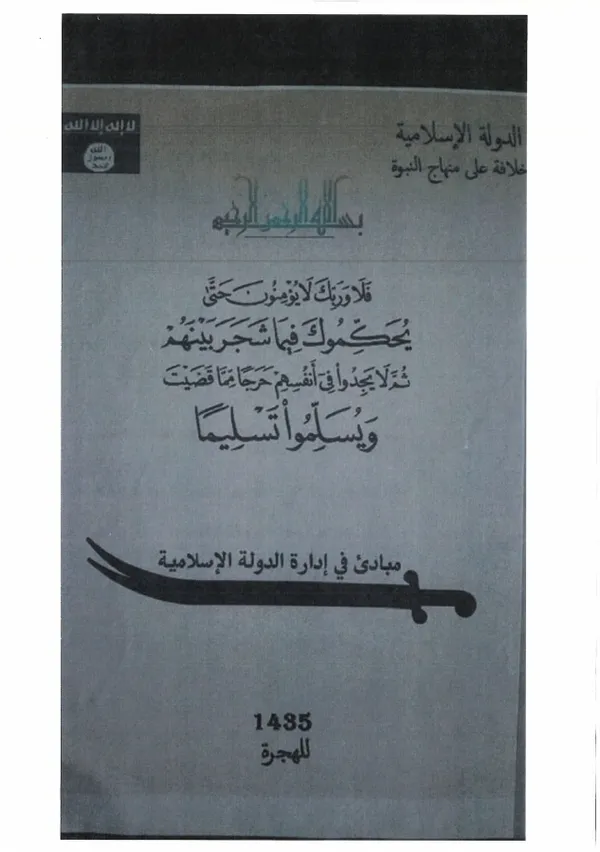 لا إله إلا الله
الله
رسول
محمد
الدولة الإسلامية
خلافة على منهاج النبوة
بسم الله الرحمن الرحيم
فَلَا وَرَبِّكَ لَا يُؤْمِنُونَ حَتَّىٰ
يُحَكِّمُوكَ فِيمَا شَجَرَ بَيْنَهُمْ
ثُمَّ لَا يَجِدُوا فِي أَنفُسِهِمْ حَرَجًا مِّمَّا قَضَيْتَ
وَيُسَلِّمُوا تَسْلِيمًا
مبادئ في إدارة الدولة الإسلامية
1435
للهجرة